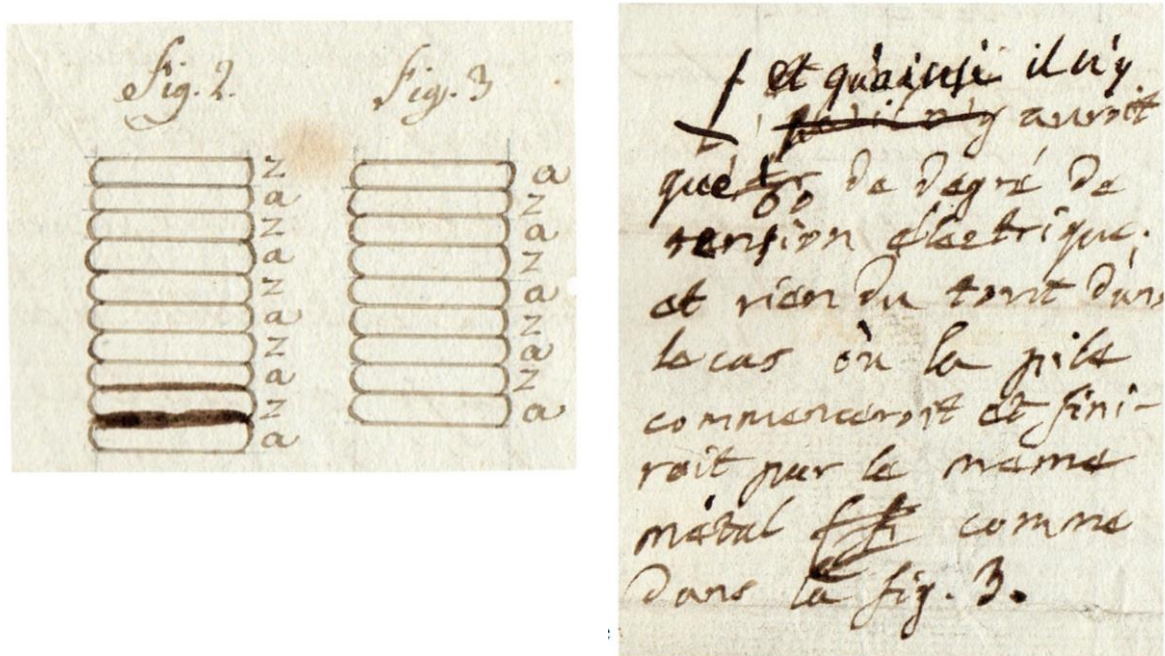 fig. 2.
z
a
z
a
z
a
z
a
z
a
fig. 3
a
z
a
z
a
z
a
z
a
et qu'ainsi il n'y
auroit
que 1/60 de degré de
tension électrique.
et rien du tout dans
le cas où la pile
commenceroit et fini-
roit par le meme
métal comme
dans la fig. 3.